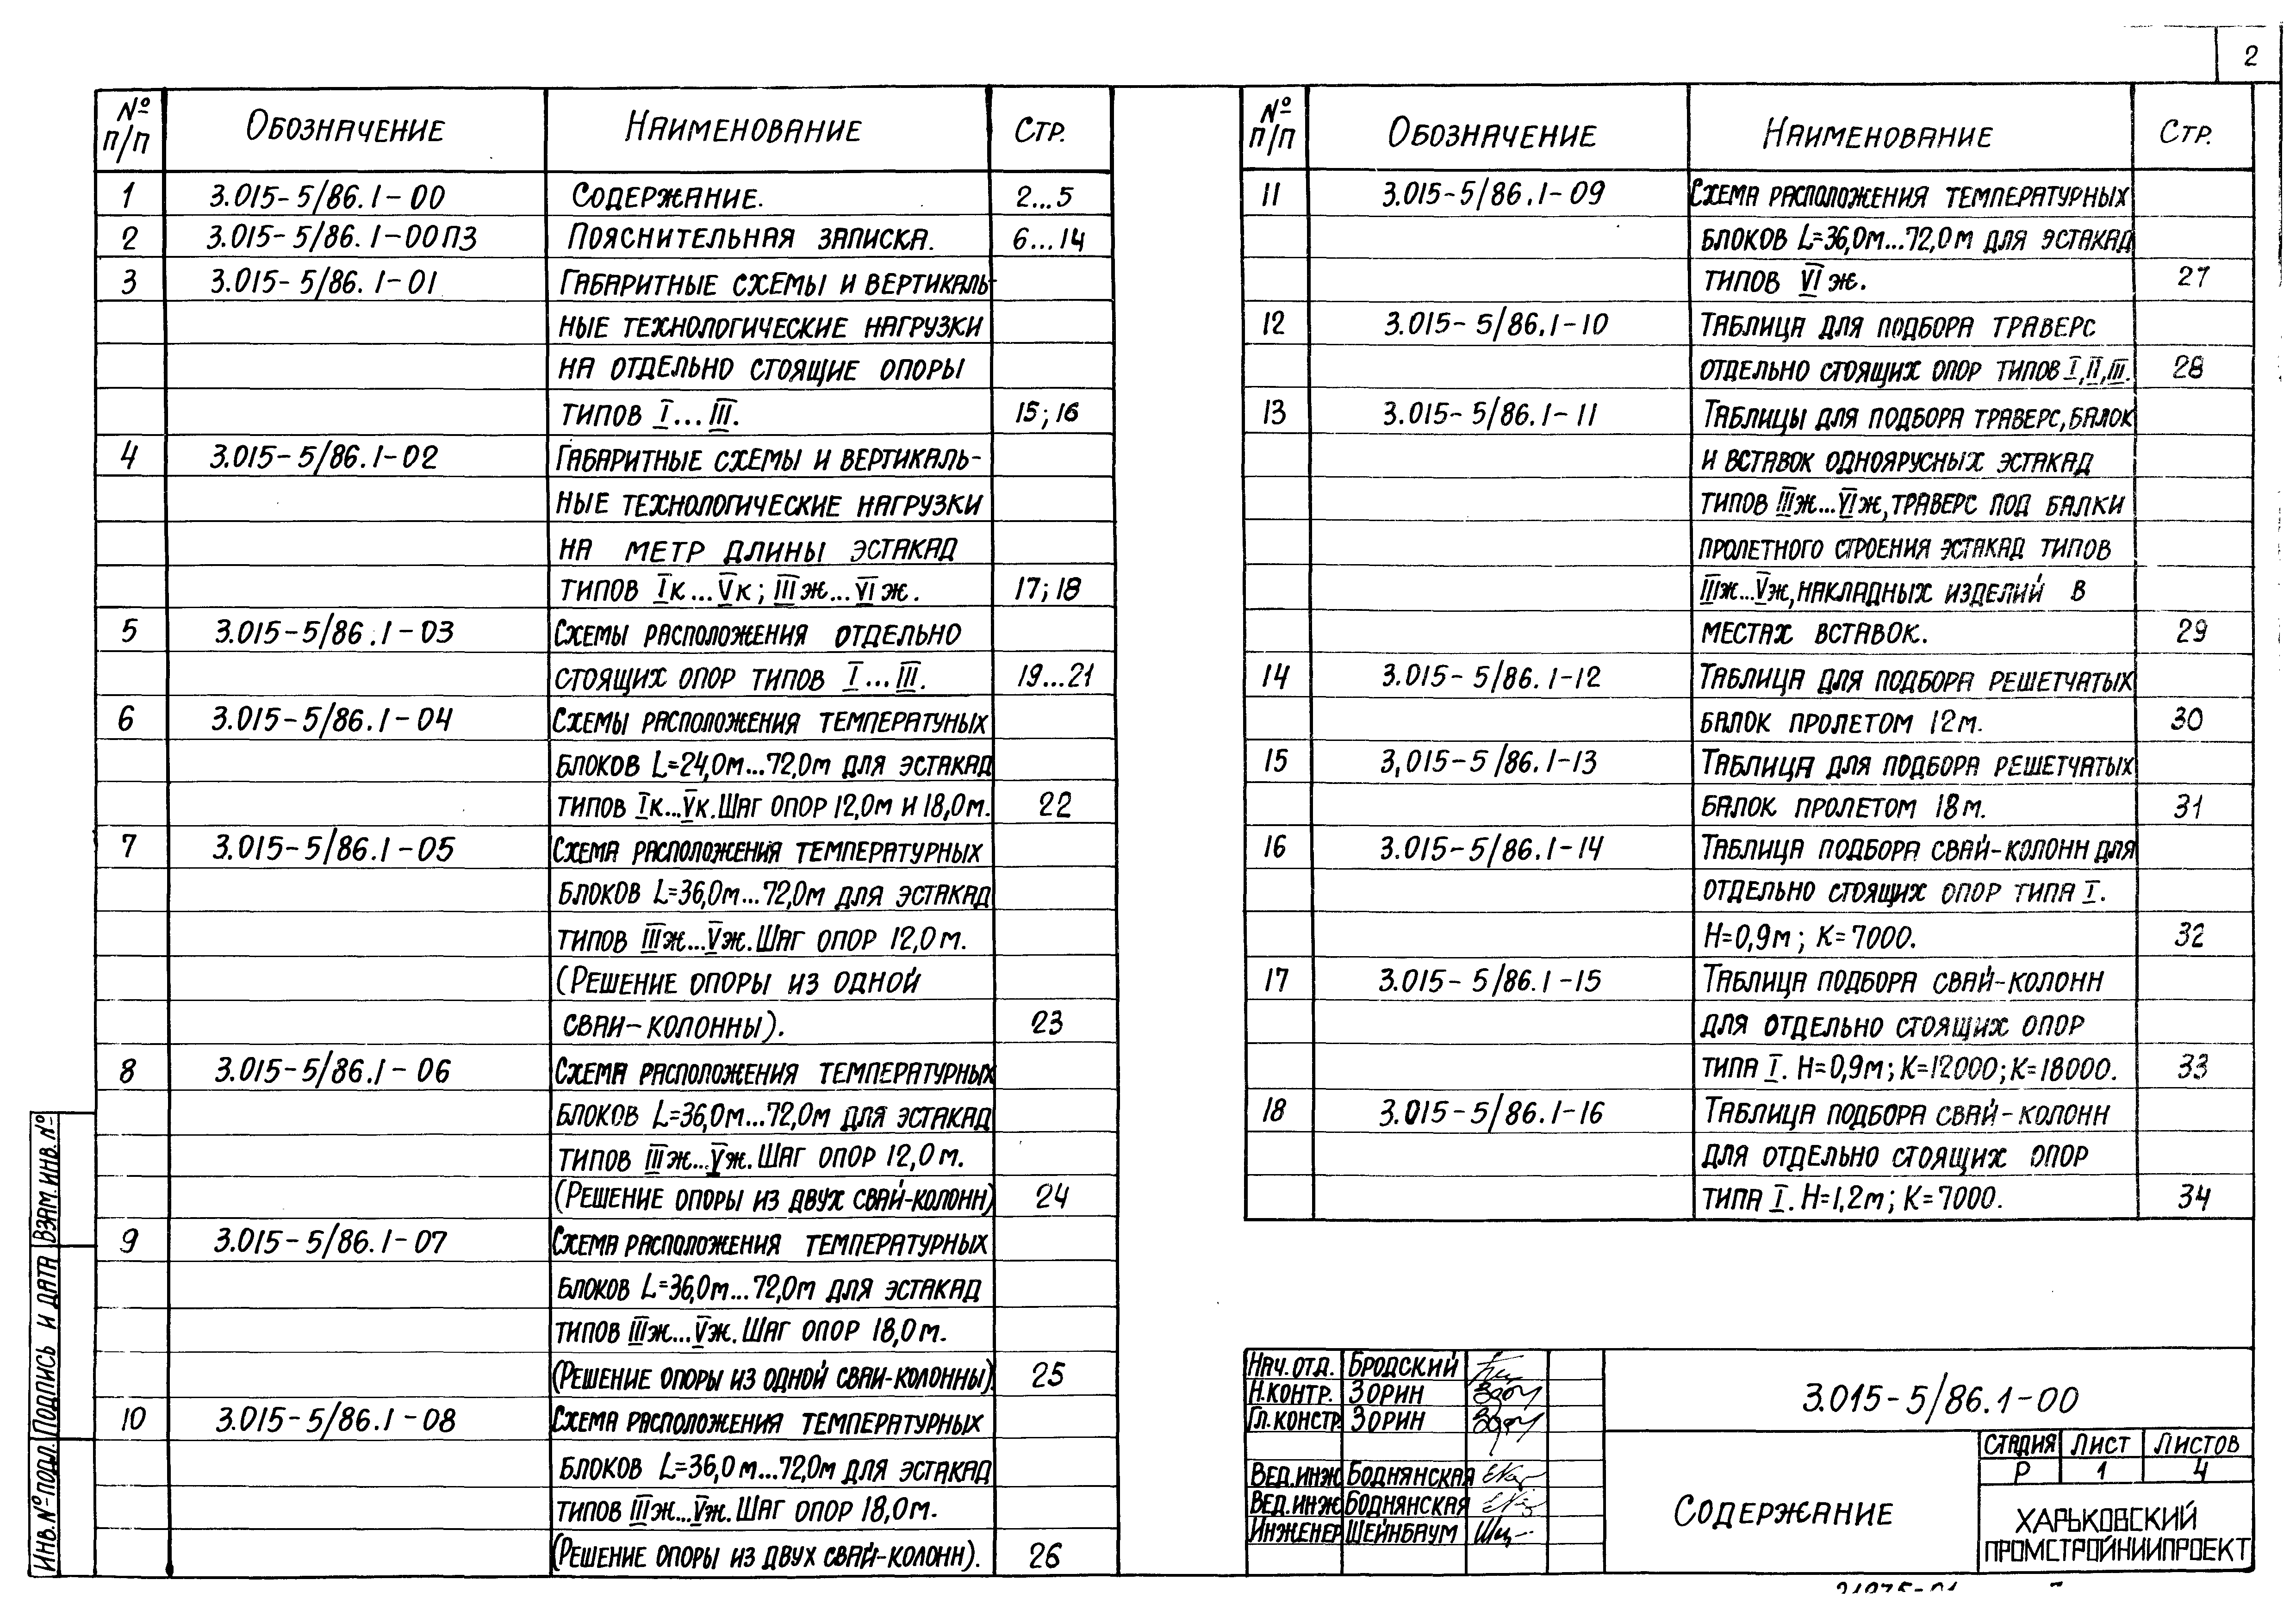 2
№ п/п Обозначение Наименование Стр.
1 3.015-5/86.1-00 Содержание. 2...5
2 3.015-5/86.1-00ПЗ Пояснительная записка. 6...14
3 3.015-5/86.1-01 Габаритные схемы и вертикаль-
ные технологические нагрузки
на отдельно стоящие опоры
типов I...III. 15; 16
4 3.015-5/86.1-02 Габаритные схемы и вертикаль-
ные технологические нагрузки
на метр длины эстакад
типов Iк...Vк; IIIж...VIж. 17; 18
5 3.015-5/86.1-03 Схемы расположения отдельно
стоящих опор типов I...III. 19...21
6 3.015-5/86.1-04 Схемы расположения температуных
блоков L=24,0м...72,0м для эстакад
типов Iк...Vк. Шаг опор 12,0м и 18,0м. 22
7 3.015-5/86.1-05 Схема расположения температурных
блоков L=36,0м...72,0м для эстакад
типов IIIж...Vж. Шаг опор 12,0м.
(Решение опоры из одной
сваи-колонны). 23
8 3.015-5/86.1-06 Схема расположения температурных
блоков L=36,0м...72,0м для эстакад
типов IIIж...Vж. Шаг опор 12,0м.
(Решение опоры из двух свай-колонн) 24
9 3.015-5/86.1-07 Схема расположения температурных
блоков L=36,0м...72,0м для эстакад
типов IIIж...Vж. Шаг опор 18,0м.
(Решение опоры из одной сваи-колонны). 25
10 3.015-5/86.1-08 Схема расположения температурных
блоков L=36,0м...72,0м для эстакад
типов IIIж...Vж. Шаг опор 18,0м.
(Решение опоры из двух свай-колонн). 26
№ п/п Обозначение Наименование Стр.
11 3.015-5/86.1-09 Схема расположения температурных
блоков L=36,0м...72,0м для эстакад
типов VIж. 27
12 3.015-5/86.1-10 Таблица для подбора траверс
отдельно стоящих опор типов I, II, III. 28
13 3.015-5/86.1-11 Таблицы для подбора траверс, балок
и вставок одноярусных эстакад
типов IIIж...VIж, траверс под балки
пролетного строения эстакад типов
IIIж...Vж, накладных изделий в
местах вставок. 29
14 3.015-5/86.1-12 Таблица для подбора решетчатых
балок пролетом 12м. 30
15 3,015-5/86.1-13 Таблица для подбора решетчатых
балок пролетом 18м. 31
16 3.015-5/86.1-14 Таблица подбора свай-колонн для
отдельно стоящих опор типа I.
H=0,9м; К=7000. 32
17 3.015-5/86.1-15 Таблица подбора свай-колонн
для отдельно стоящих опор
типа I. H=0,9м; К=12000; К=18000. 33
18 3.015-5/86.1-16 Таблица подбора свай-колонн
для отдельно стоящих опор
типа I. H=1,2м; К=7000. 34
Инв. № подл. Подпись и дата Взам. инв. №
Нач. отд. Бродский
Н. контр. Зорин
Гл. констр. Зорин
Вед. инж. Боднянская
Вед. инж. Боднянская
Инженер Шейнбаум
3.015-5/86.1-00
Содержание
Стадия Лист Листов
Р 1 4
Харьковский
Промстройниипроект